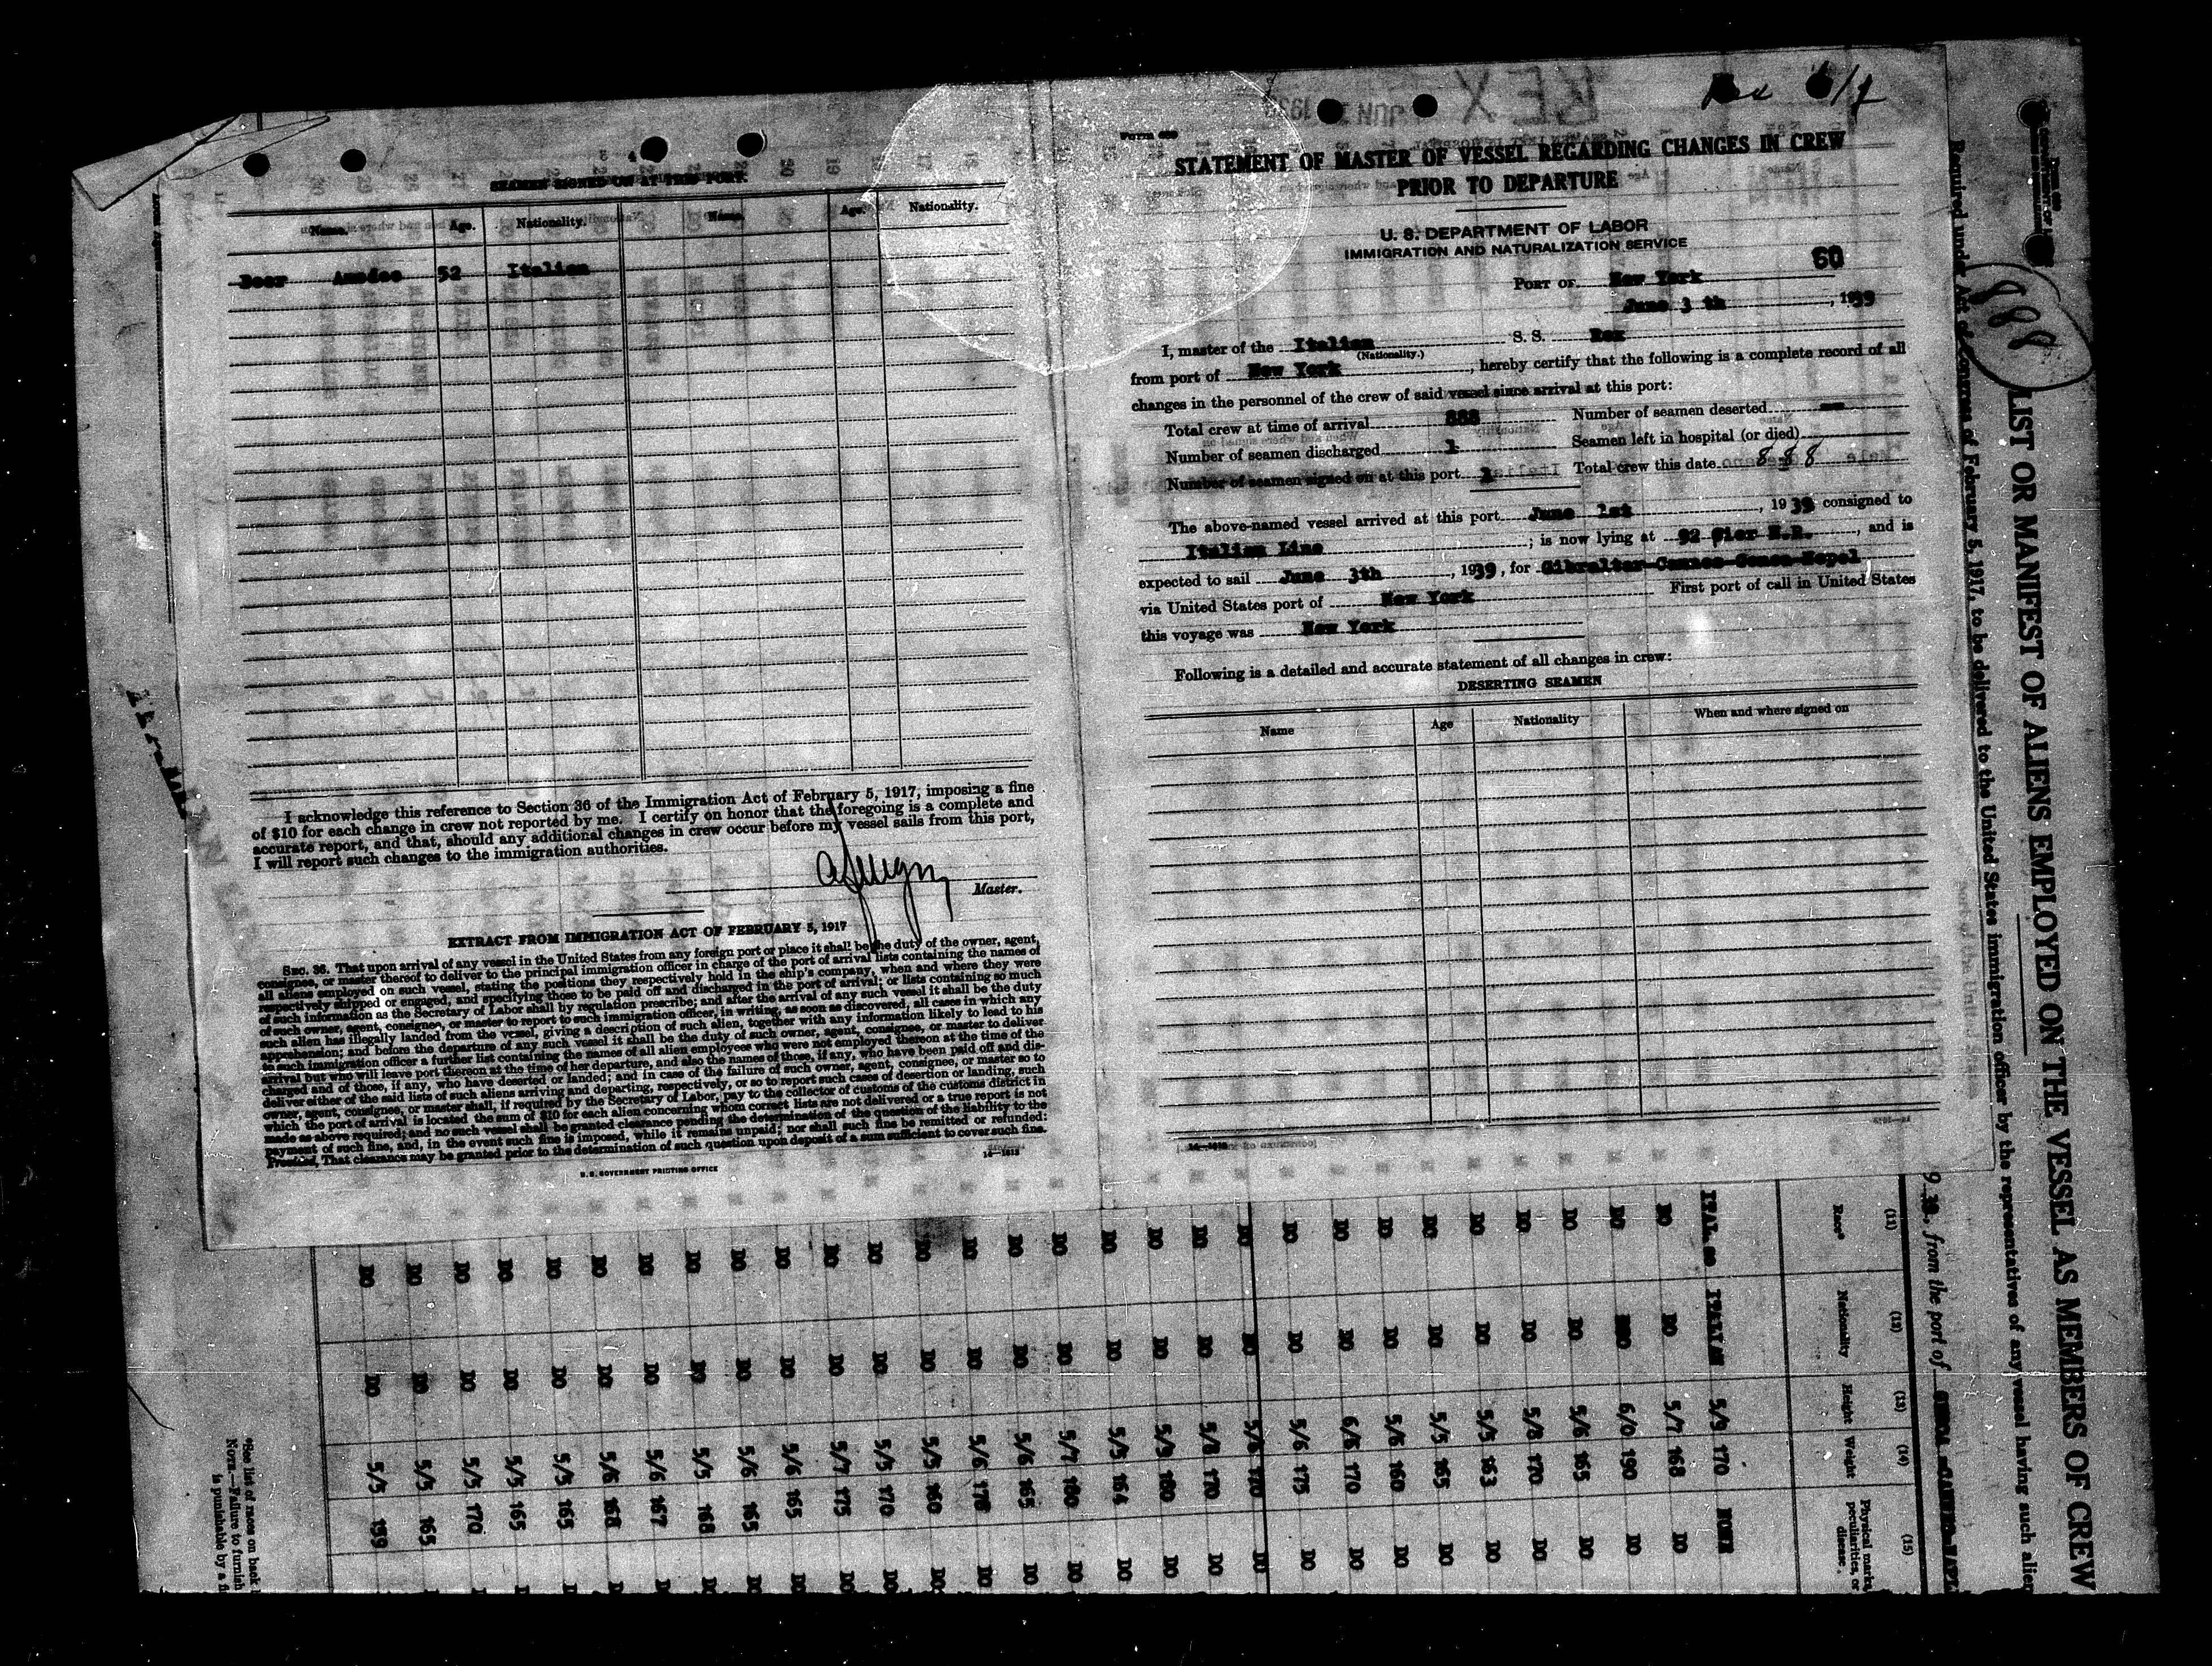 SEAMEN SIGNED ON AT THIS PORT.
Name. Age. Nationality. Name. Age. Nationality.
Beer Amedeo 52 Italian
I acknowledge this reference to Section 36 of the Immigration Act of February 5, 1917, imposing a fine
of $10 for each change in crew not reported by me. I certify on honor that the foregoing is a complete and
accurate report, and that, should any additional changes in crew occur before my vessel sails from this port,
I will report such changes to the immigration authorities.
Master.
EXTRACT FROM IMMIGRATION ACT OF FEBRUARY 5, 1917
SEC. 36. That upon arrival of any vessel in the United States from any foreign port or place it shall be the duty of the owner, agent,
consignee, or master thereof to deliver to the principal immigration officer in charge of the port of arrival lists containing the names of
all aliens employed on such vessel, stating the positions they respectively hold in the ship's company, when and where they were
respectively shipped or engaged, and specifying those to be paid off and discharged in the port of arrival; or lists containing so much
of such information as the Secretary of Labor shall by regulation prescribe; and after the arrival of any such vessel it shall be the duty
of such owner, agent, consignee, or master to report to such immigration officer, in writing, as soon as discovered, all cases in which any
such alien has illegally landed from the vessel, giving a description of such alien, together with any information likely to lead to his
apprehension; and before the departure of any such vessel it shall be the duty of such owner, agent, consignee, or master to deliver
to such immigration officer a further list containing the names of all alien employees who were not employed thereon at the time of the
arrival but who will leave port thereon at the time of her departure, and also the names of those, if any, who have been paid off and dis-
charged and of those, if any, who have deserted or landed; and in case of the failure of such owner, agent, consignee, or master so to
deliver either of the said lists of such aliens arriving and departing, respectively, or so to report such cases of desertion or landing, such
owner, agent, consignee, or master shall, if required by the Secretary of Labor, pay to the collector of customs of the customs district in
which the port of arrival is located the sum of $10 for each alien concerning whom correct lists are not delivered or a true report is not
made as above required; and no such vessel shall be granted clearance pending the determination of the question of the liability to the
payment of such fine, and, in the event such fine is imposed, while it remains unpaid; nor shall such fine be remitted or refunded:
Provided, That clearance may be granted prior to the determination of such question upon deposit of a sum sufficient to cover such fine.
U.S. GOVERNMENT PRINTING OFFICE
Rex
STATEMENT OF MASTER OF VESSEL REGARDING CHANGES IN CREW
PRIOR TO DEPARTURE
U. S. DEPARTMENT OF LABOR
IMMIGRATION AND NATURALIZATION SERVICE
60
PORT OF New York
June 3 th, 1939
I, master of the Italian S. S. Rex
(Nationality.)
from port of New York, hereby certify that the following is a complete record of all
changes in the personnel of the crew of said vessel since arrival at this port:
Total crew at time of arrival 888 Number of seamen deserted
Number of seamen discharged 1 Seamen left in hospital (or died)
Number of seamen signed on at this port 1 Total crew this date 888
The above-named vessel arrived at this port June 1st, 1939 consigned to
Italian Line; is now lying at 92 Pier N.R., and is
expected to sail June 3th, 1939, for Gibraltar-Cannes-Genoa-Nepel
via United States port of New York First port of call in United States
this voyage was New York
Following is a detailed and accurate statement of all changes in crew:
DESERTING SEAMEN
Name Age Nationality When and where signed on
888
LIST OR MANIFEST OF ALIENS EMPLOYED ON THE VESSEL AS MEMBERS OF CREW
Required under Act of Congress of February 5, 1917, to be delivered to the United States immigration officer by the representatives of any vessel having such alien
from the port of
(11) (12) (13) (14) (15)
Race* Nationality Height Weight Physical marks, peculiarities, or disease
ITAL. SO ITALIAN 5/9 170 NONE
DO DO 5/7 168 DO
DO DO 6/0 190 DO
DO DO 5/6 165 DO
DO DO 5/8 170 DO
DO DO 5/5 163 DO
DO DO 5/5 165 DO
DO DO 5/6 160 DO
DO DO 6/5 170 DO
DO DO 5/6 175 DO
DO DO 5/8 170 DO
DO DO 5/8 170 DO
DO DO 5/9 180 DO
DO DO 5/5 164 DO
DO DO 5/7 180 DO
DO DO 5/6 165 DO
DO DO 5/6 178 DO
DO DO 5/5 160 DO
DO DO 5/5 170 DO
DO DO 5/7 175 DO
DO DO 5/6 165
DO DO 5/6 165
DO DO 5/5 168
DO DO 5/6 167
DO DO 5/6 168
DO DO 5/5 165
DO DO 5/5 165
DO DO 5/5 170
DO DO 5/5 165
DO DO 5/5 159
*See list of races on back
NOTE.—Failure to furnish
is punishable by a fi